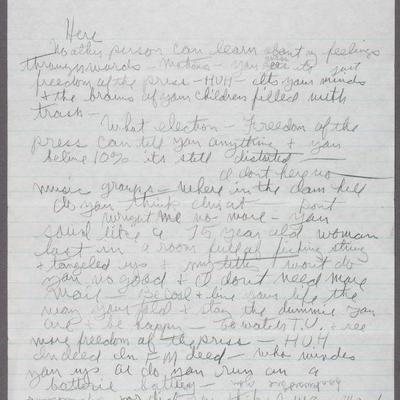 Here
No other person can learn about my feelings
through words - Motions - you see its just
freedom of the press - HUH - its your minds
& the brains of your children filled with
trash -
What election - Freedom of the
press can tell you anything & you
belive 10% its still distorted -
I dont here no
music groups - where in the dam hell
do you think I'm at dont
wright me no more - you
sound like a 75 year old woman
lost in a room full of string
& tangeled up & my titty wont do
you no good & I dont need more
mail - Be cool & live your life the
way your told & stay the dummie you
are & be happy - Go watch T.V. & see
more freedom of the press - HUH
indeed In - M deed - who windes
you up or do you run on a
batterie battery -